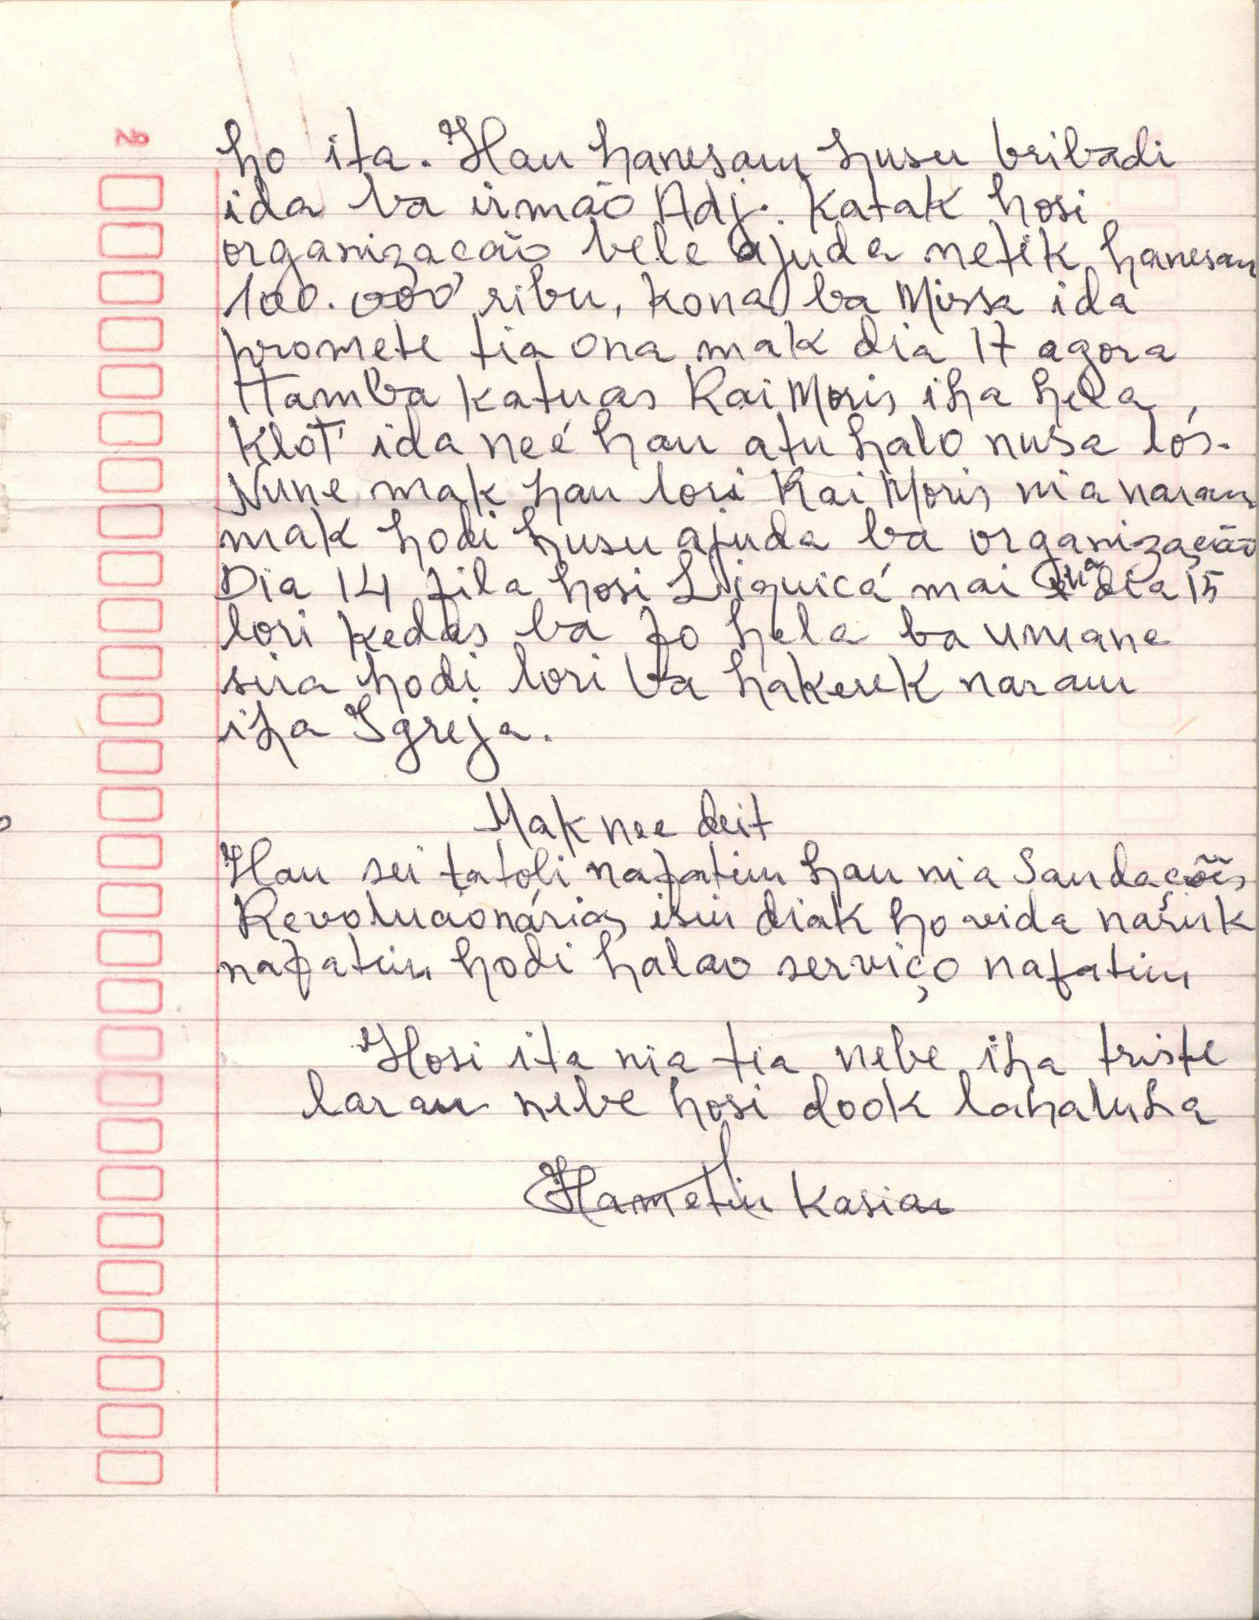 ho ita. Hau hanesam husu bribadi
ida ba irmão Adj. katak hosi
organizacão bele ajuda netik hanesan
100.000 ribu, kona ba Missa ida
promete tia ona mak dia 17 agora
Hamba katuas Kai Moris iha hela,
Klot ida neé hau atu halo nusa lós.
Nune mak hau lori Kai Moris nia naran
mak hodi husu ajuda ba organização
Dia 14 fila hosi Liquicá mai iha dia 15
lori kedas ba fo hela ba umane
sira hodi lori ba hakerek naram
iha Igreja.
Mak nee deit
Hau sei tatoli nafatim hau nia Saudações
Revolucionárias isin diak ho vida naruk
nafatim hodi halao serviço nafatim
Hosi ita nia tia nebe iha triste
laran nebe hosi dook lahaluha
Hametin Kasian